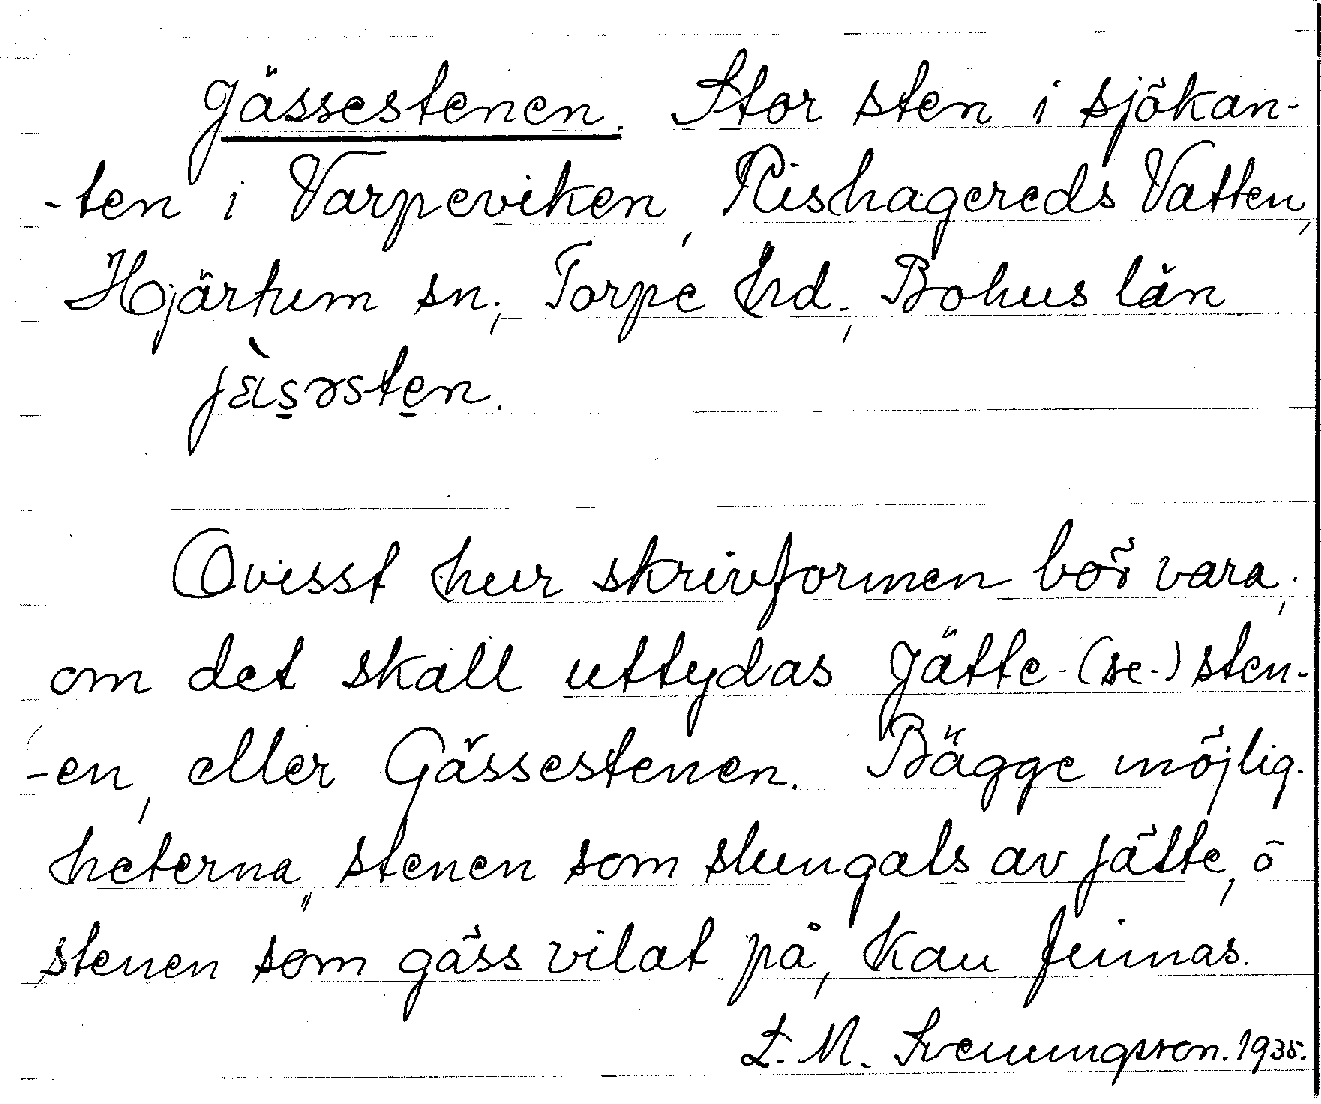 Gässestenen. Stor sten i sjökan-
-ten i Varpeviken, Rishagereds Vatten,
Hjärtum sn; Torpe hd; Bohus län
jässəsten.
Ovisst hur skrivformen bör vara;
om det skall uttydas Jätte-(se-)sten-
-en, eller Gässestenen. Bägge möjlig-
heterna, stenen som slungats av jätte, o
stenen som gäss vilat på, kan finnas.
L. M. Svenungsson. 1935.